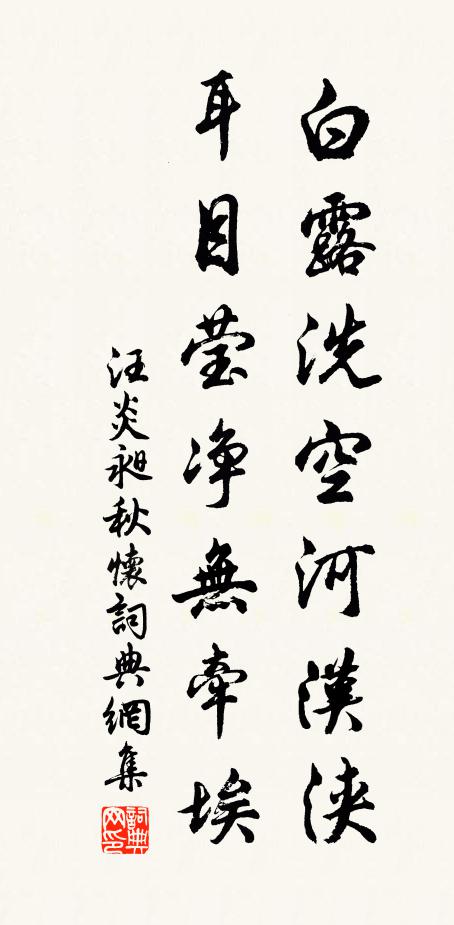 白露洗空河漢浹
耳目瑩淨無牽埃
汪炎昶秋懷詞典網集
詞典网印